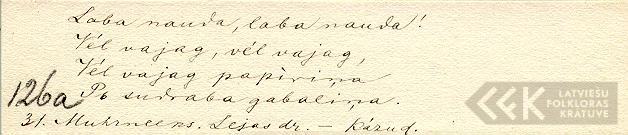 Laba nauda, laba nauda!
Vēl vajag, vēl vajag,
Vēl vajag papīriņa
126a Pō sudraba gabaliņa.
31. Muhrneeks. Lejas dr. —
LATVIEŠU
FOLKLORAS
KRĀTUVE